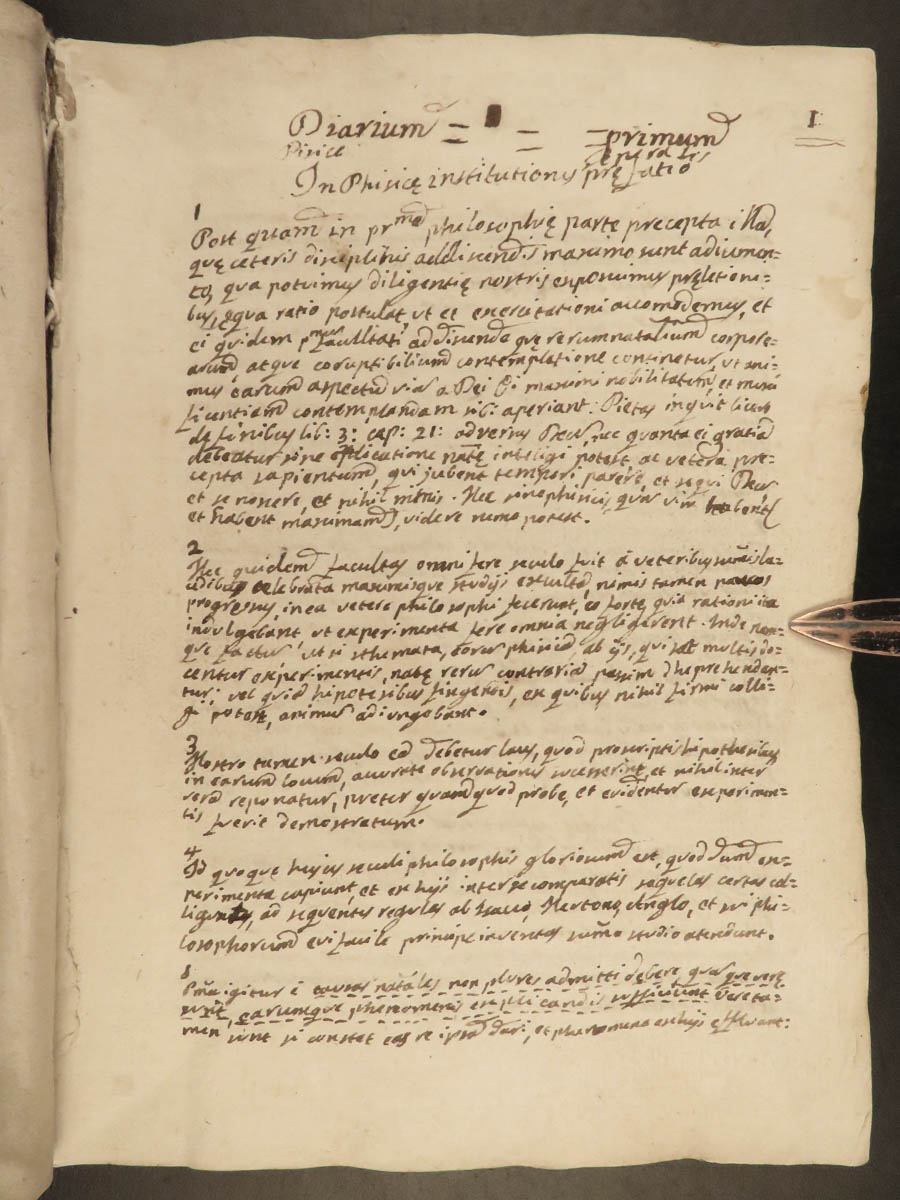 1
Diarium = = = primum
In Phisicę institutionis pręfatio
1
Post quam in prma philosophię parte precepta illa,
quę ceteris disciplinis addiscendis maximo sunt adiumen=
to, qua potuimus diligentię nostris exposuimus pręletioni=
bus, ęqua ratio postulat, ut et exercitationi accomodemus, et
ei quidem facultati addiscendę quę rerum naturalium corpore=
arum, atque coruptibilium contemplatione continetur, ut ani=
mus earum aspectu viam a Dei Opti maximi nobilitatem, et muni
ficentiam contemplandam sibi aperiant. Pietas inquit
de finibus lib: 3: cap: 21: adversus Deum, nec quanta ei gratia
debeatur sine explicatione natę inteligi potest, ac vetera pre=
cepta sapientum, qui jubent tempori parere, et sequi Deum
et se noscere, et nihil nimis. Hec sine phisicis, quam vim habent
et habent maximam, videre nemo potest.
2
Hec quidem facultas omni fere seculo fuit a veteribus sumis la=
udibus celebrata maximisque studijs exculta, nimis tamen paucos
progresus in ea vetere philosophi fecerunt, eo forte, quia rationi ita
indulgebant, ut experimenta fere omnia negligerent. Inde
que factum, ut si sthemata, eorum phisica ab ijs, qui multis do=
centur experimentis, natę rerum contraria passim dheprehendan=
tur; vel quid hipotesibus fingendis, ex quibus nihil firmi colli=
gi potest, animum adiungebant.
3
Nostro tamen seculo ea debetur laus, quod proscriptis hipothesibus
in earum locum, acurate observationis sucesserint, et nihil inter
vera reponatur, preter quam quod probe, et evidenter experimen=
tis fuerit demostratum.
4
Id quoque hujus seculi philosophis gloriosum est, quod dum ex=
perimenta capiunt, et ex hijs inter se comparatis sequelas certas col=
ligunt, ad sequentes regulas ab Isaco, Neutono, Anglo, et sui phi=
losophorum evi facile principe inventas sumo studio atendunt.
Pma igitur ē causas natales non plures admitti debere, quam que verę
sunt, earumque phenomenis explicandis sufficiunt. Vere ta=
men sunt si constet eas re ipsa dari, et phenomena ex hijs effluant: